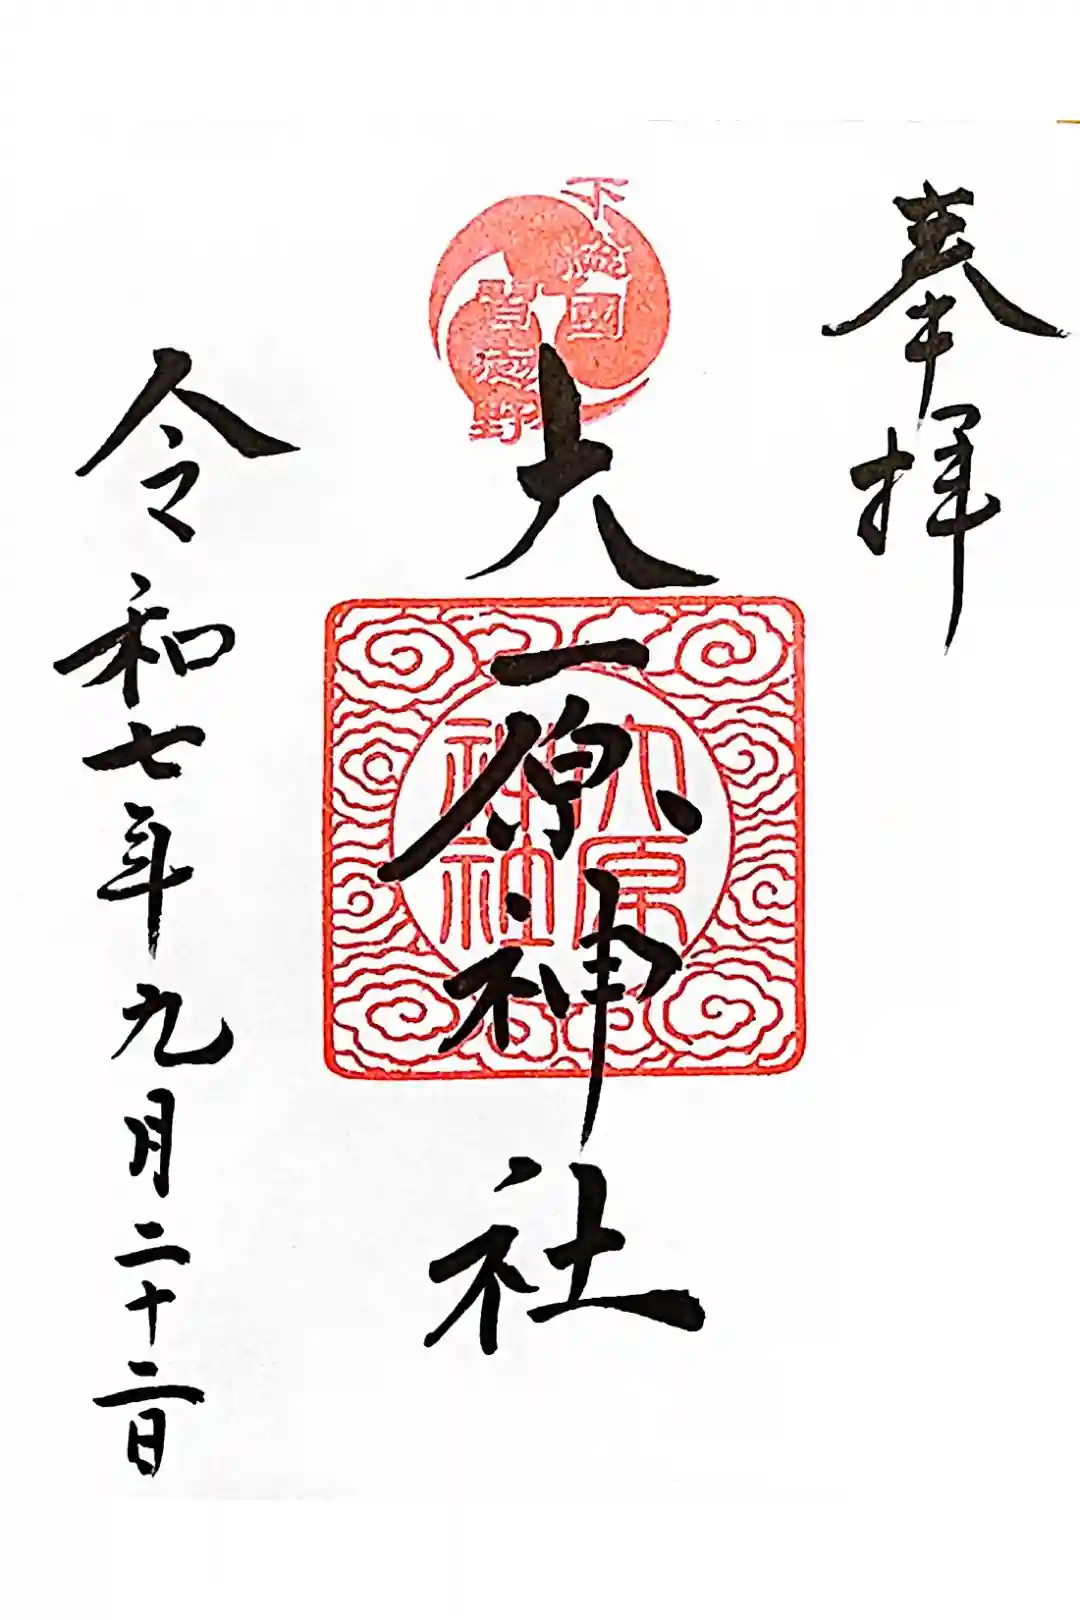 奉拝
下総國
習志野
大原神社
大原
神社
令和七年九月二十二日